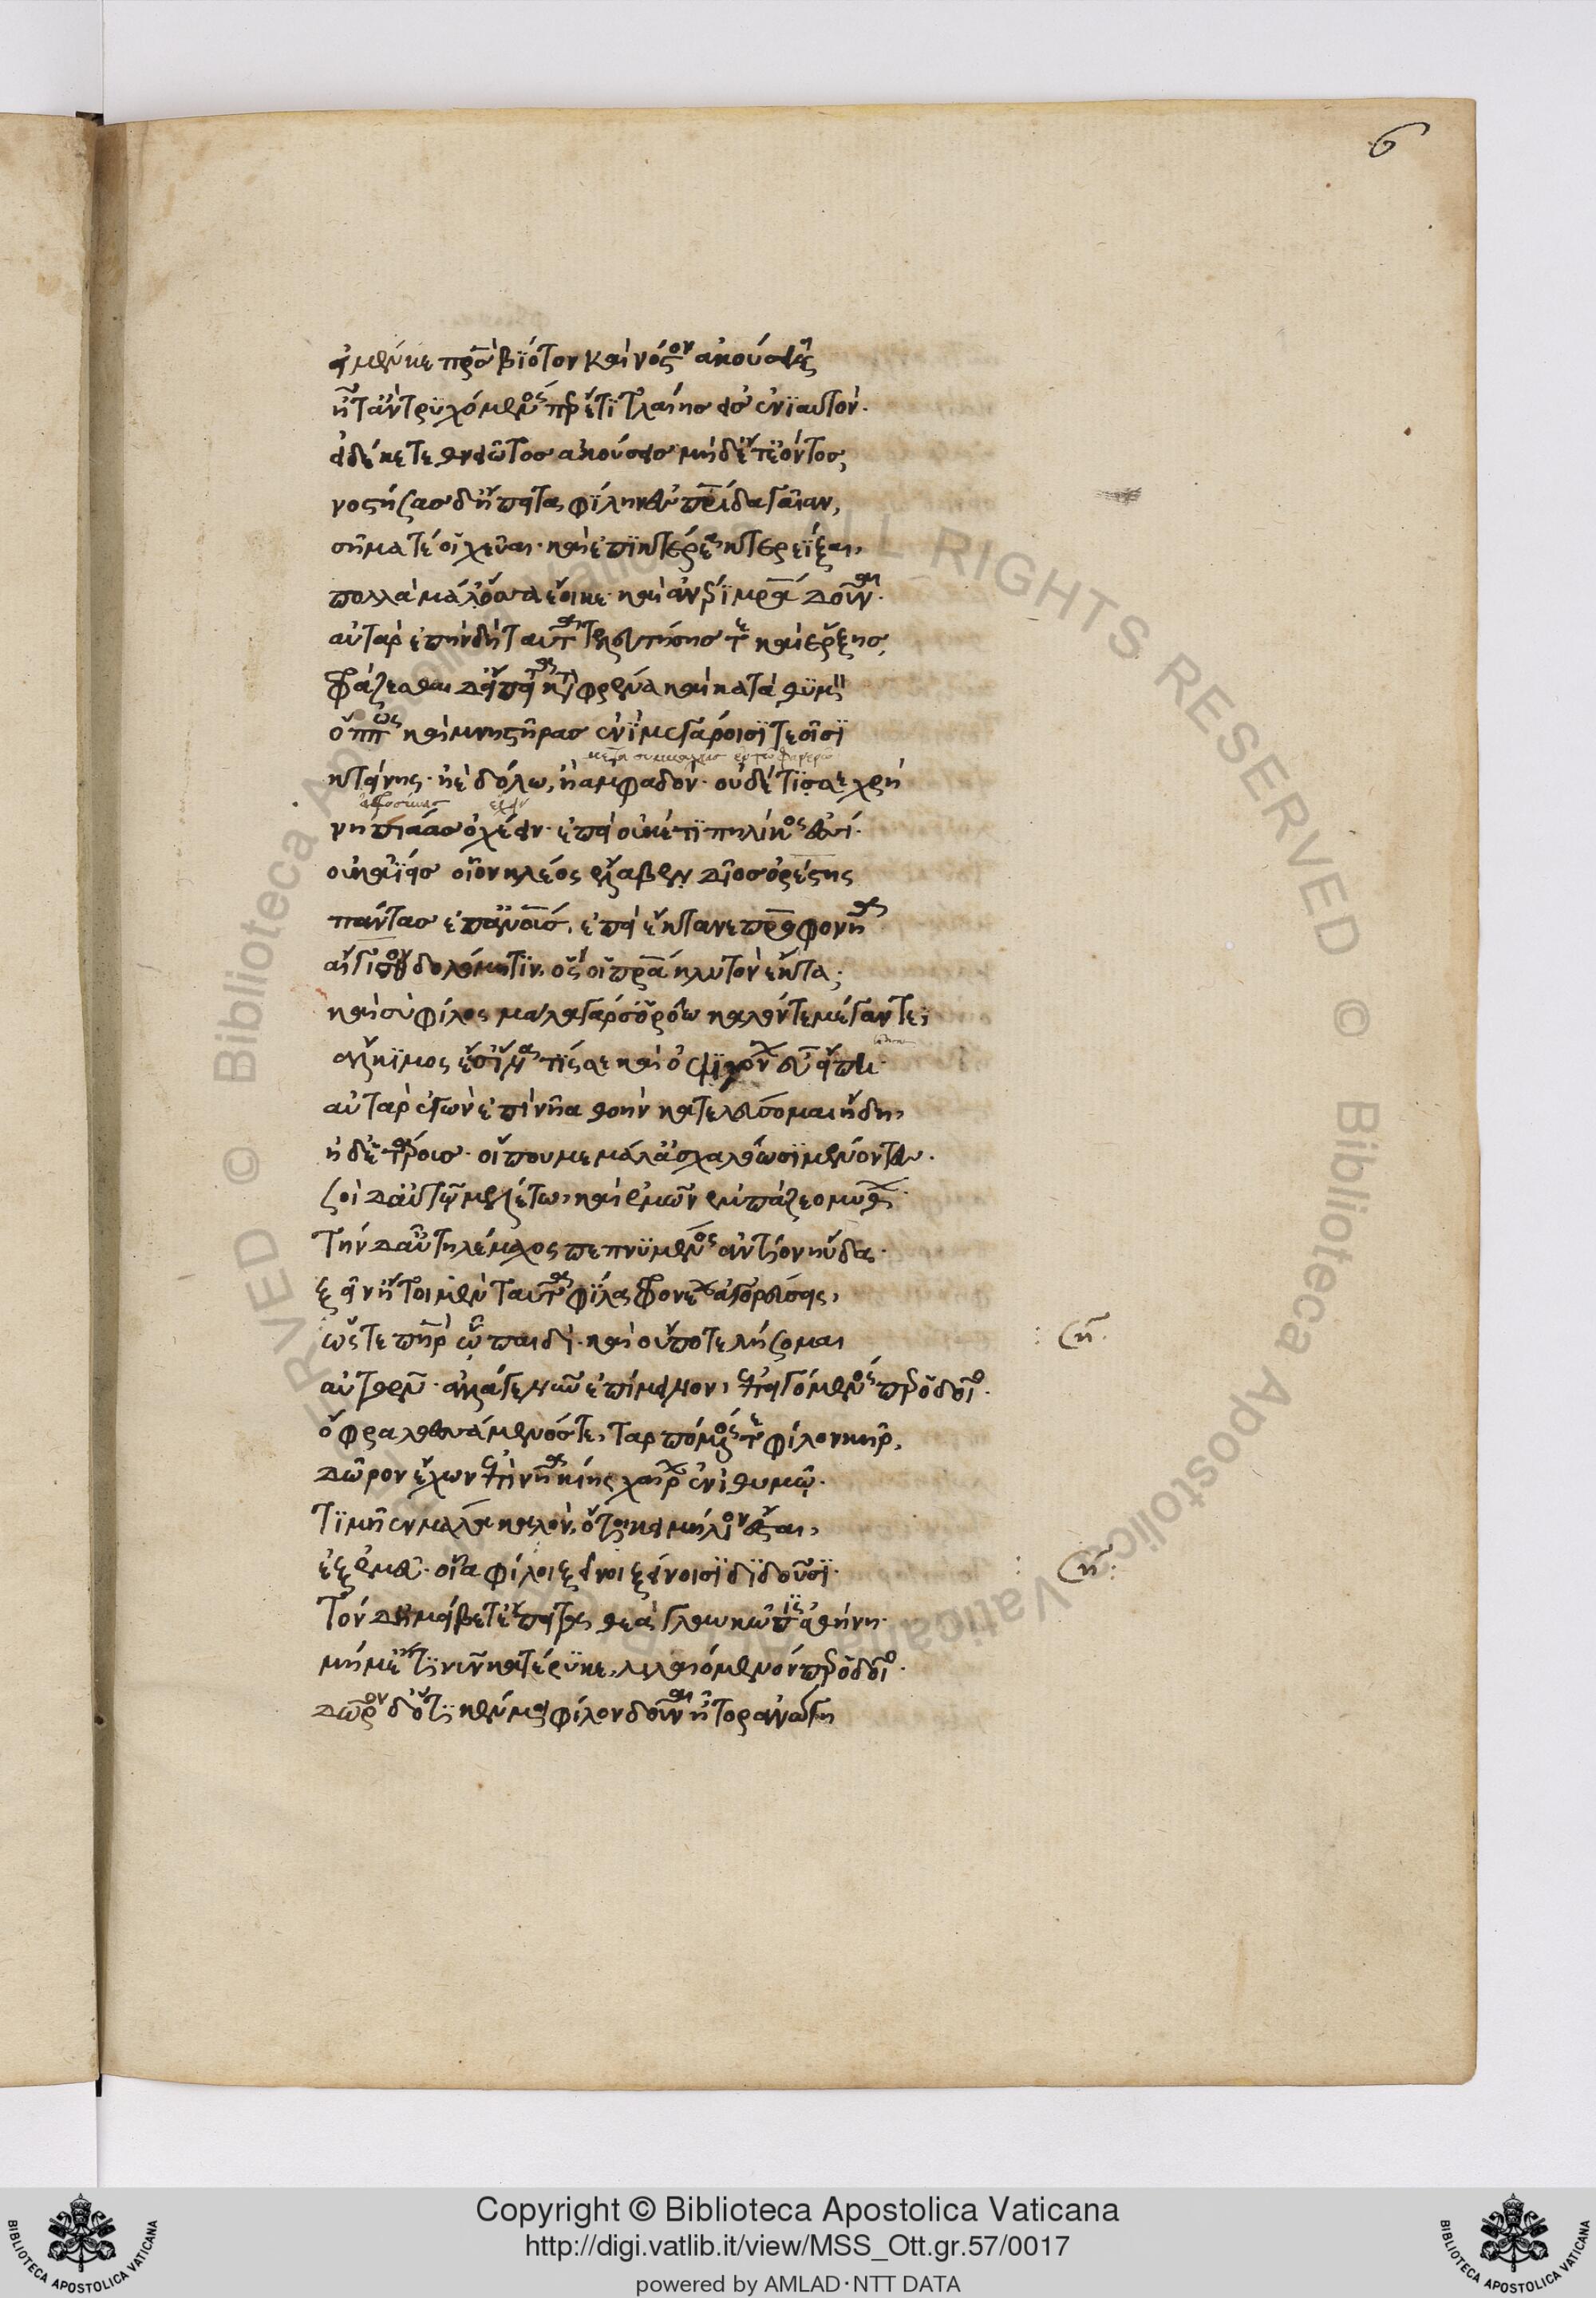 εἰ μέν κε πατρὸς βίοτον καὶ νόστον ἀκούσεις
ἦ τ' ἂν τρυχόμενός περ ἔτι τλαίης εἰς ἐνιαυτόν·
εἰ δέ κε τεθνειῶτος ἀκούσεις μηδέ τ' ἐόντος,
νοστήσας δὴ ἔπειτα φίλην ἐς πατρίδα γαῖαν,
σῆμα τέ οἱ χεῦαι· καὶ ἐπὶ κτέρεα κτερεΐξαι,
πολλὰ μάλ' ὅσσα ἔοικε· καὶ ἀνέρι μητέρα δοῦναι·
αὐτὰρ ἐπὴν δὴ ταῦτα τελευτήσης τε καὶ ἔρξης,
φράζεσθαι δὴ ἔπειτα κατὰ φρένα καὶ κατὰ θυμὸν
ὅππως καὶ μνηστῆρας ἐνὶ μεγάροισι τεοῖσι
ἐν τῷ φανερῷ
κτείνης· ἠὲ δόλω, ἢ ἀμφαδόν· οὐδέ τι σε χρὴ
ἀφροσύνας ἔχειν
νηπιάας ὀχέειν· ἐπεὶ οὐκέτι τηλίκος ἐσσί·
οὐκ ἀΐεις οἷον κλέος ἔλλαβεν δῖος ὀρέστης
πάντας ἐπ' ἀνθρώπους, ἐπεὶ ἔκτανε πατροφονῆα
αἴγισθον δολόμητιν, ὅς οἱ πατέρα κλυτὸν ἔκτα,
καὶ σὺ φίλος μάλα γάρ σ' ὁρόω καλόν τε μέγαν τε,
ἄλκιμος ἔσσ' ἵνα τίς σε καὶ ὀψιγόνων εὖ εἴπει·
αὐτὰρ ἐγὼν ἐπὶ νῆα θοὴν κατελεύσομαι ἤδη,
ἠδ' ἑτάρους· οἵ που με μάλ' ἀσχαλόωσι μένοντες·
σοὶ δ' αὐτῷ μελέτω, καὶ ἐμῶν ἐμπάζεο μύθων·
τὴν δ' αὖ τηλέμαχος πεπνυμένος ἀντίον ηὔδα·
ξεῖν' ἤτοι μὲν ταῦτα φίλα φρονέων ἀγορεύεις,
ὥς τε πατὴρ ᾧ παιδί· καὶ οὔποτε λήσομαι
αὐτῶν· ἀλλάγε νῦν ἐπίμεινον, ἐπειγόμενός περ ὁδοῖο·
ὄφρα λοεσσάμενός τε, ταρπόμενός τε φίλον κῆρ,
δῶρον ἔχων ἐπὶ νῆα κίης χαίρων ἐνὶ θυμῷ·
τιμῆεν μάλα καλόν, ὅ τοι κειμήλιον ἔσται,
ἐξ ἐμεῦ· οἷα φίλοι ξεῖνοι ξείνοισι διδοῦσι·
τὸν δ' ἠμείβετ' ἔπειτα θεὰ γλαυκῶπις ἀθήνη·
μή μ' ἔτι νῦν κατέρυκε, λιλαιόμενόν περ ὁδοῖο·
δῶρον δ' ὅττι κέν μοι φίλον δοῦναι ἦτορ ἀνώγη
6
Copyright © Biblioteca Apostolica Vaticana
http://digi.vatlib.it/view/MSS_Ott.gr.57/0017
powered by AMLAD·NTT DATA